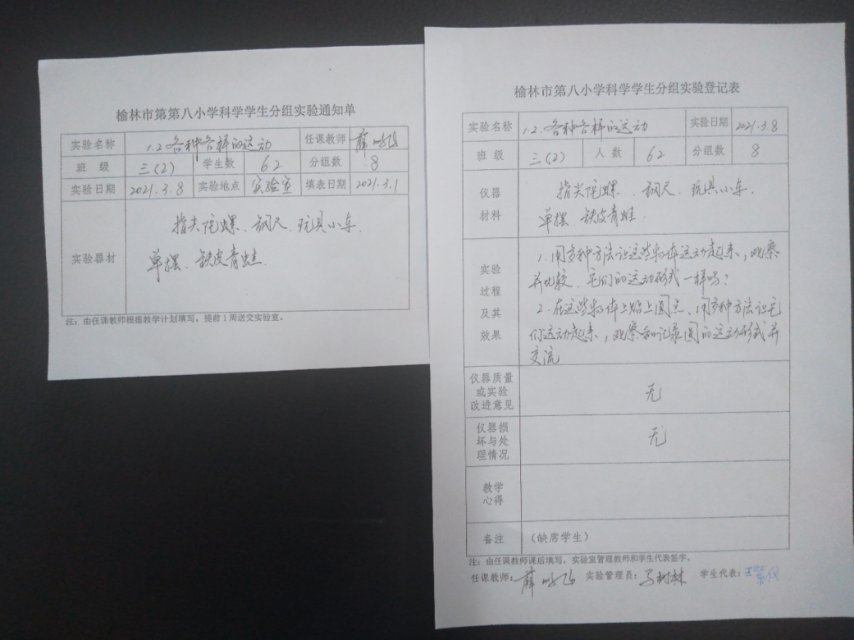 榆林市第第八小学科学学生分组实验通知单
实验名称 1.2各种各样的运动 任课教师 薛
班 级 三(2) 学生数 62 分组数 8
实验日期 2021.3.8 实验地点 实验室 填表日期 2021.3.1
实验器材
指尖陀螺、钢尺、玩具小车、
单摆、铁皮青蛙.
注:由任课教师根据教学计划填写,提前1周送交实验室。
榆林市第八小学科学学生分组实验登记表
实验名称 1.2.各种各样的运动 实验日期 2021.3.8
班 级 三(2) 人 数 62 分组数 8
仪器
材料
指尖陀螺、钢尺、玩具小车、
单摆、铁皮青蛙.
实验
过程
及其
效果
1.用多种方法让这些物体运动起来,观察
并比较,它们的运动形式一样吗?
2.在这些物体上贴上圆点、用多种方法让它
们运动起来,观察和记录圆的运动形式并
交流
仪器质量
或实验
改进意见
无
仪器损
坏与处
理情况
无
教学
心得
备注 (缺席学生)
注:由任课教师课后填写,实验室管理教师和学生代表签字。
任课教师:薛 实验管理员:马树林 学生代表: